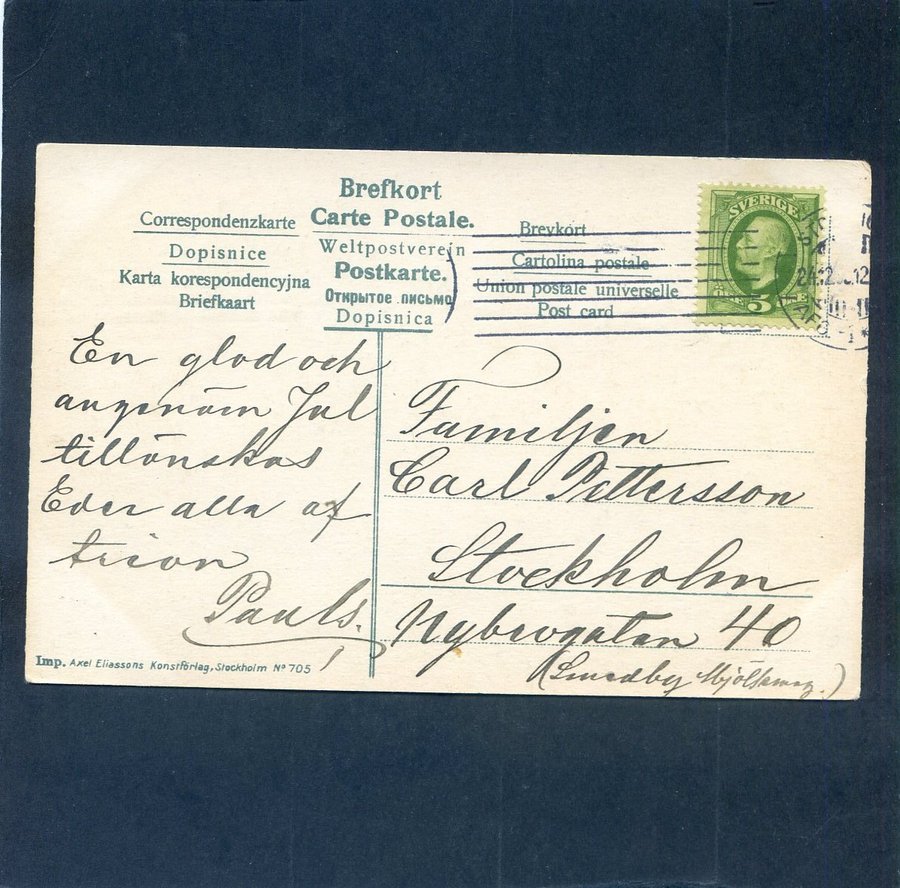 Brefkort
Carte Postale.
Weltpostverein
Postkarte.
Открытое письмо
Dopisnica
Correspondenzkarte
Dopisnice
Karta korespondencyjna
Briefkaart
Brevkort
Cartolina postale
Union postale universelle
Post card
SVERIGE
5
En glad och
angenäm Jul
tillönskas
Eder alla af
trion
Pauls.
Familjen
Carl Pettersson
Stockholm
Nybrogatan 40
(Smedby Mjölkmag.)
Imp. Axel Eliassons Konstförlag, Stockholm No 705